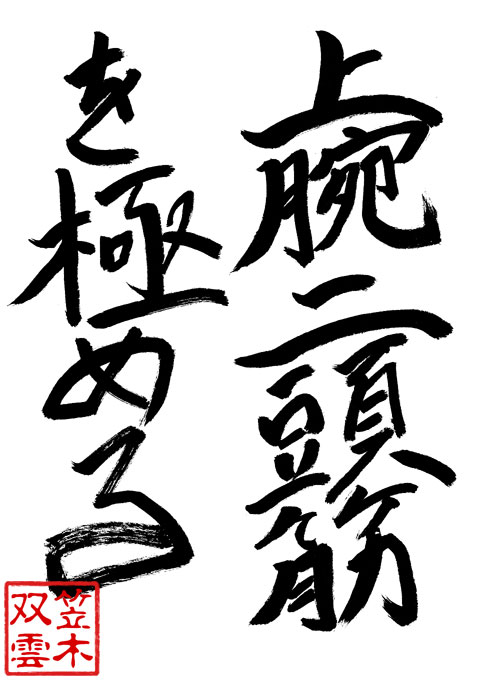 上腕二頭筋
を極める
笠木
双雲